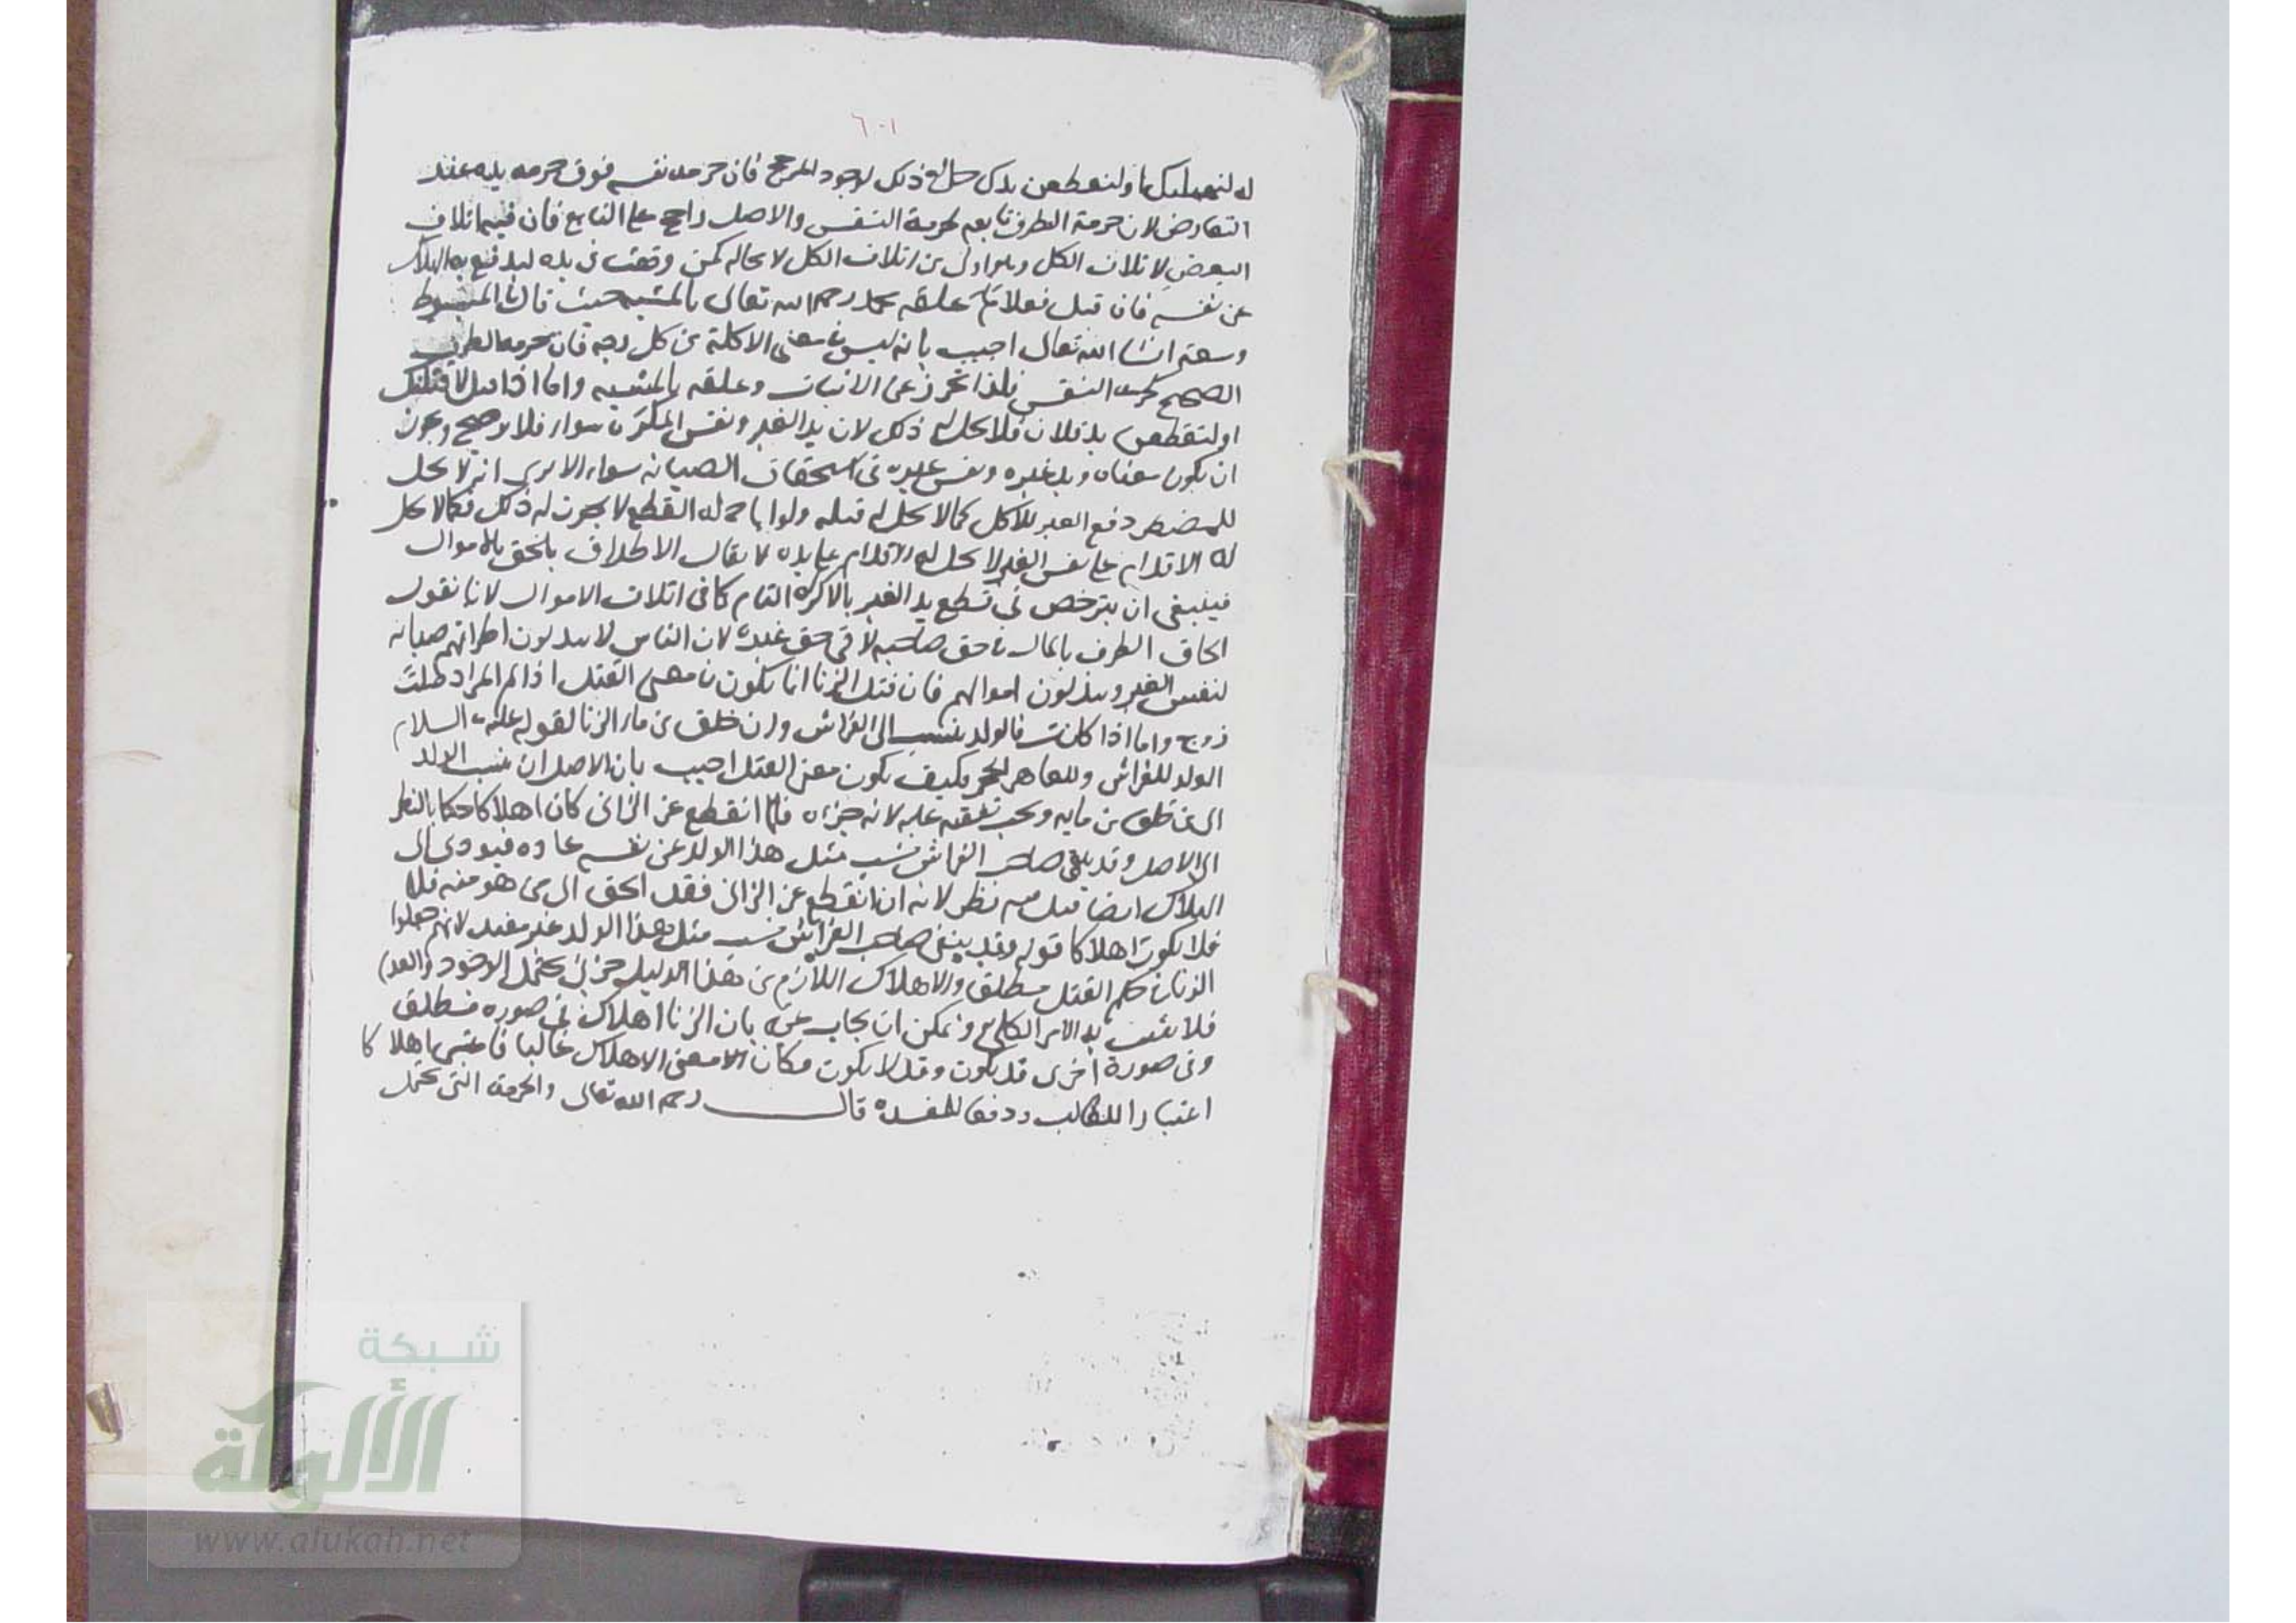 ٦٠١
له لنقتلنك او لنقطعن يدك حل له ذلك لوجود المرجح فان حرمة نفسه فوق حرمة يده عند
التعارض لان حرمة الطرف تابعه لحرمة النفس والاصل راجح على التابع فان فيها اتلاف
البعض لا تلاف الكل وهو اولى من اتلاف الكل لا محاله كمن وقعت في يده ليدفع به الهلاك
عن نفسه فان قيل فعلام علقه محمد رحمه الله تعالى بالمشيه حيث قال
وسعه ان شا الله تعالى اجيب بانه ليس في معنى الاكلة من كل وجه فان حرمة الطرف
الصحيح كحرمة النفس فلذا تحرز عن الاثبات وعلقه بالمشيه واما اذا قيل لا قتلنك
او لتقطعن يد فلان فلا يحل له ذلك لان يد الغير ونفس المكره سواء فلا ترجيح ويجوز
ان يكون معناه ويد غيره ونفس غيره في استحقاق الصيانه سواء الا يرى انه لا يحل
للمضطر قطع الغير للاكل كما لا يحل له قتله ولو اباح له القطع لا يجوز له ذلك فكما لا يحل
له الاقدام على نفس الغير لا يحل له الاقدام على يده لا يقال الاطراف يلحق بالاموال
فينبغي ان يترخص في قطع يد الغير بالاكراه التام كما في اتلاف الاموال لانا نقول
الحاق الطرف بالمال في حق صاحبه لا في حق غيره لان الناس لا يبذلون اطرافهم صيانه
لنفس الغير ويبذلون اموالهم فان قيل الزنا انما يكون في معنى القتل اذا لم المراة ذات
زوج واما اذا كانت فالولد ينسب الى الفراش وان خلق من ماء الزنا لقوله عليه السلام
الولد للفراش وللعاهر الحجر فكيف يكون معنى القتل اجيب بان الاصل ان ينسب الولد
الى من خلق من مايه ويجب نفقته عليه لانه جزءه فلما انقطع عن الزاني كان اهلاكا حكما بالنظر
الى الاصل وقد ينفي صاحب الفراش نسب مثل هذا الولد عن نفسه عادة فيودي الى
الهلاك ايضا قيل فيه نظر لانه ان انقطع عن الزاني فقد الحق الى من هو منه فلا
فلا يكون اهلاكا قوله وقد ينفي صاحب الفراش نسب مثل هذا الولد غير مفيد لانهم جعلوا
الزنا في حكم القتل مطلقا والاهلاك اللازم من هذا الدليل جزئي يحتمل الوجود والعدم
فلا يثبت به الامر الكلي ويمكن ان يجاب عنه بان الزنا اهلاك في صورة مطلق
وفي صورة اخرى قد يكون وقد لا يكون فكان معنى الاهلاك غالبا فاعتبر اهلاكا
اعتبارا للغالب ودفعا للمفسدة قال رحمه الله تعالى والحرمة التي تحتمل
شبكة
الألوكة
www.alukah.net